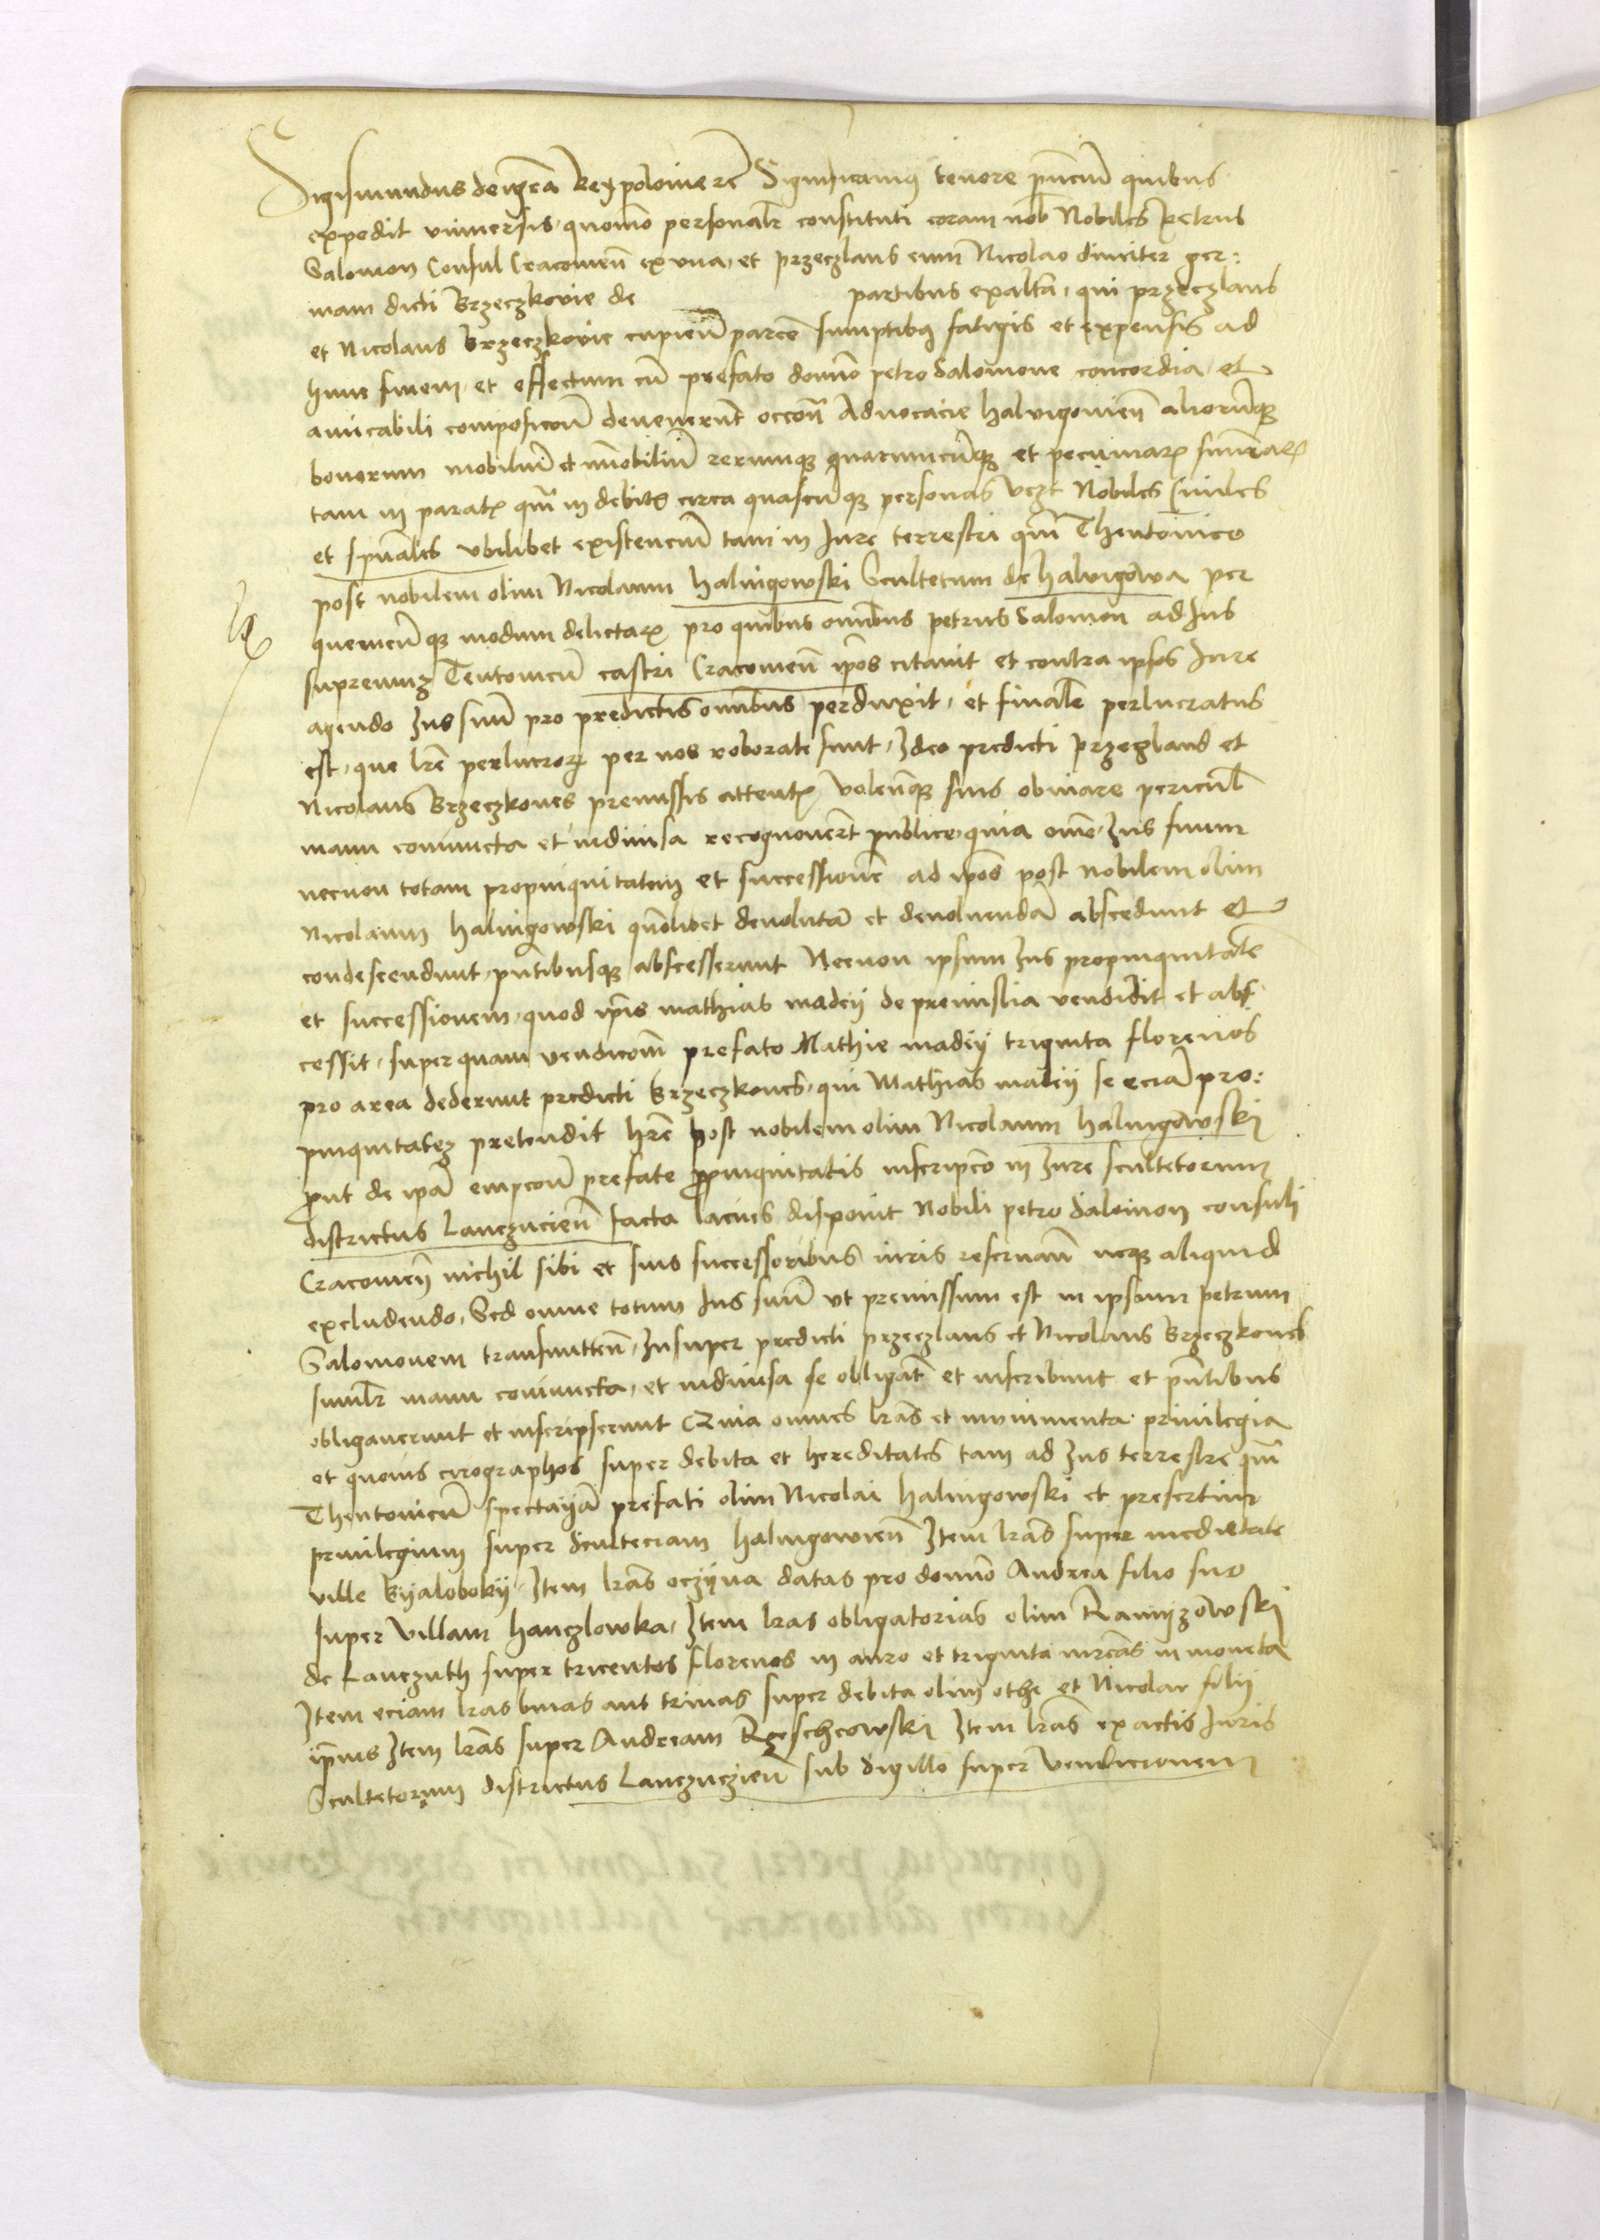 Sigismundus dei gra Rex polonie rc Significamus tenore pncium quibus
expedit vniuersis, quomo personalr constituti coram nob Nobiles Petrus
Salomon Consul Cracouien ex vna, et Przeczlaus cum Nicolao diuiciter ger:
mani dicti Brzeczkovie de partibus ex altra, qui przeczlaus
et Nicolaus Brzeczkovie cupien parce sumptibus fatigis et expensis ad
hunc finem, et effectum cu prefato domino petro Salomone concordia, et
amicabili composicoi deuenerut occoni Aduocacie halvigouien aliorumque
bonorum mobiliu et immobiliu rerumque quarumcunque et pecuniarum summarum
tam in paratis qm in debitis circa quascunque personas vezt Nobiles Ciuiles
et spuales vbilibet existenciu tam in Jure terrestri qm Theutonico
post nobilem olim Nicolaum halvigowski Scultetum de halvigowa per
quemcunque modum delictarum pro quibus omnibus petrus Salomon ad Jus
supremum Teutonicu castri Cracouien ipos citauit et contra ipsos Jure
agendo Jus suu pro predictis omnibus perduxit, et finale perlucratus
est, que lre perlucrorum per nos roborate sunt, Ideo predicti Przeczlaus et
Nicolaus Brzeczkoues premissis attentis volenque suis obuiare pericul
manu coniuncta et indiuisa recognouert publice, quia ome Jus suum
necnon totam propinquitatem et successione ad ipos post nobilem olim
Nicolaum halvigowski quolibet deuoluta et deuoluenda abscedunt et
condescendunt, pntibusque abscesserunt Necnon ipsum Jus propinquitate
et successionem, quod ipis mathias madeij de premislia vendidit et abs
cessit, super quam vendicom prefato Mathie madeij triginta florenos
pro area dederunt predicti Brzeczkoues, qui Mathias madeij se ecia pro:
pinquitatem pretendit hre post nobilem olim Nicolaum halvigowski
prout de ipa empcoi prefate propinquitatis inscripco in Jure scultetorum
districtus Lanczucien facta lacius disponit Nobili petro Salomon consuli
Cracouien nichil sibi et suis successoribus iuris reseruan neque aliquid
excludendo, Sed omne totum Jus suu vt premissum est in ipsum petrum
Salomonem transmitten, Insuper predicti przeczlaus et Nicolaus Brzeczkoues
similr manu coniuncta, et indiuisa se obligat et inscribunt et pntibus
obligauerunt et inscripserunt Quia omnes lras et munimenta priuilegia
et quouis cirographos super debita et hereditates tam ad Jus terrestre qm
Theutonicu spectancia prefati olim Nicolai halvigowski et presertim
priuilegium super Scultetiam halvigowien Item lras super medietate
ville Byaloboky, Item lras oczijna datas pro domino Andrea filio suo
super villam hanczlowka, Item lras obligatorias olim Ramijzowski
de Lanczuth super tricentos florenos in auro et triginta mrcas in moneta
Item eciam lras binas aut trinas super debita olim othe et Nicolai filij
ipius Item lras super Andream Rzeschcowski Item lras ex actis Juris
Scultetorum districtus Lanczuczien sub sigillo super vendicionem